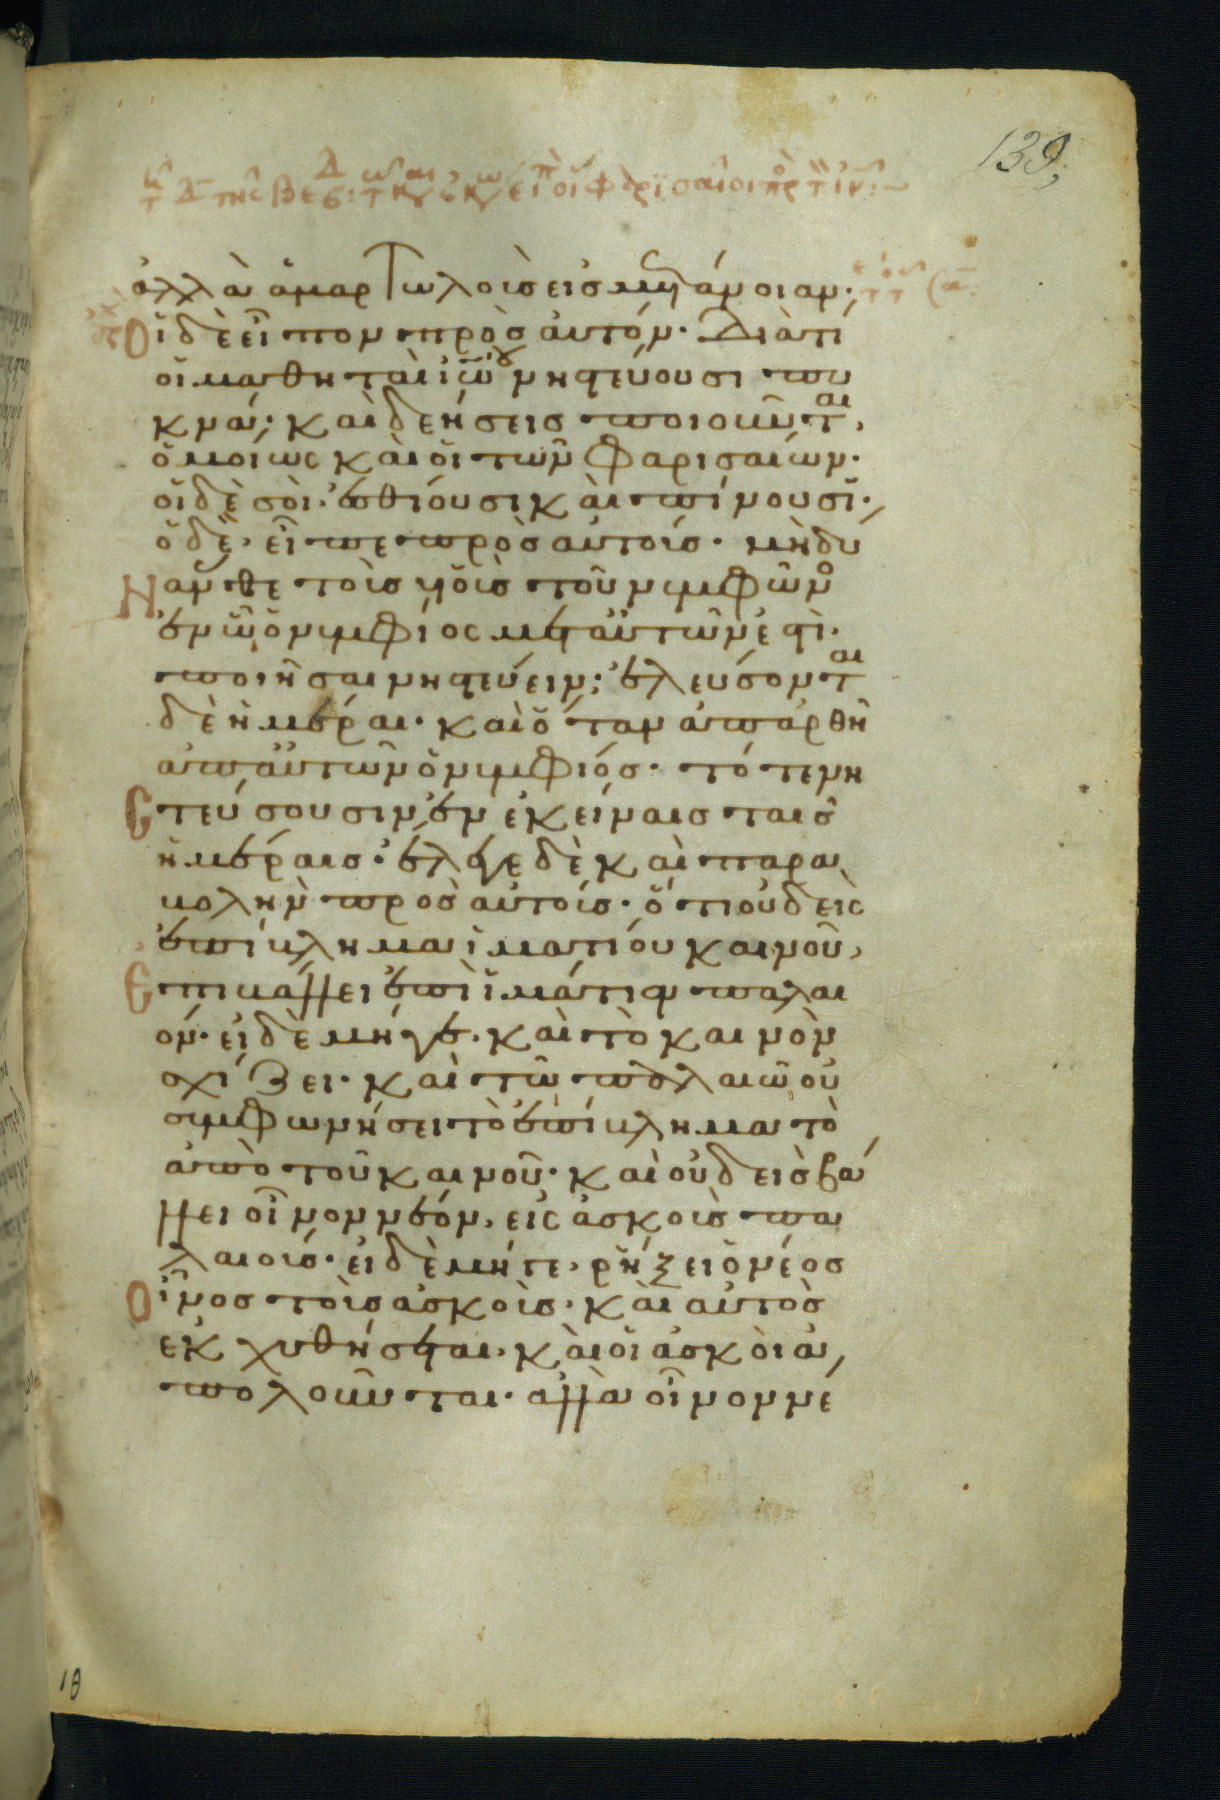 139
ἀλλὰ ἁμαρτωλοὺς εἰς μετάνοιαν·
Οἱ δὲ εἶπον πρὸς αὐτόν· Διὰτί
οἱ μαθηταὶ ἰω νηστεύουσι πυ
κνά· καὶ δεήσεις ποιοῦνται,
ὁμοίως καὶ οἱ τῶν Φαρισαίων·
οἱ δὲ σοὶ· ἐσθίουσι καὶ πίνουσι·
ὁ δὲ· εἶπε πρὸς αὐτούς· μὴ δύ
Νασθε τοὺς υἱοὺς τοῦ νυμφῶνο
ἐν ᾧ ὁ νυμφίος μετ αὐτῶν ἐστὶ·
ποιῆσαι νηστεύειν; ἐλεύσονται
δὲ ἡμέραι· καὶ ὅταν ἀπαρθῆ
ἀπ αὐτῶν ὁ νυμφίός· τότε νη
Ϲτεύσουσιν ἐν ἐκείναις ταις
ἡμέραις· ἔλεγε δὲ καὶ παρα
βολὴν πρὸς αὐτούς· ὅτι οὐδεὶς
ἐπίβλημα ἱματίου καινοῦ,
Επιβάλλει ἐπὶ ἱμάτιον παλαι
όν· εἰ δὲ μήγε· καὶ τὸ καινὸν
σχίζει· καὶ τῶ παλαιῶ οὐ
συμφωνήσει τὸ ἐπίβλημα τὸ
ἀπὸ τοῦ καινοῦ· καὶ οὐδεὶς βά
λλει οἶνον νέον, εἰς ἀσκοὺς πα
λαιούς· εἰ δὲ μήγε, ῥήξει ὁ νέος
Οἶνος τοὺς ἀσκοὺς· καὶ αὐτὸς
ἐκχυθήσεται· καὶ οἱ ἀσκοὶ ἀ
πολοῦνται· ἀλλὰ οἶνον νέ
ιθ